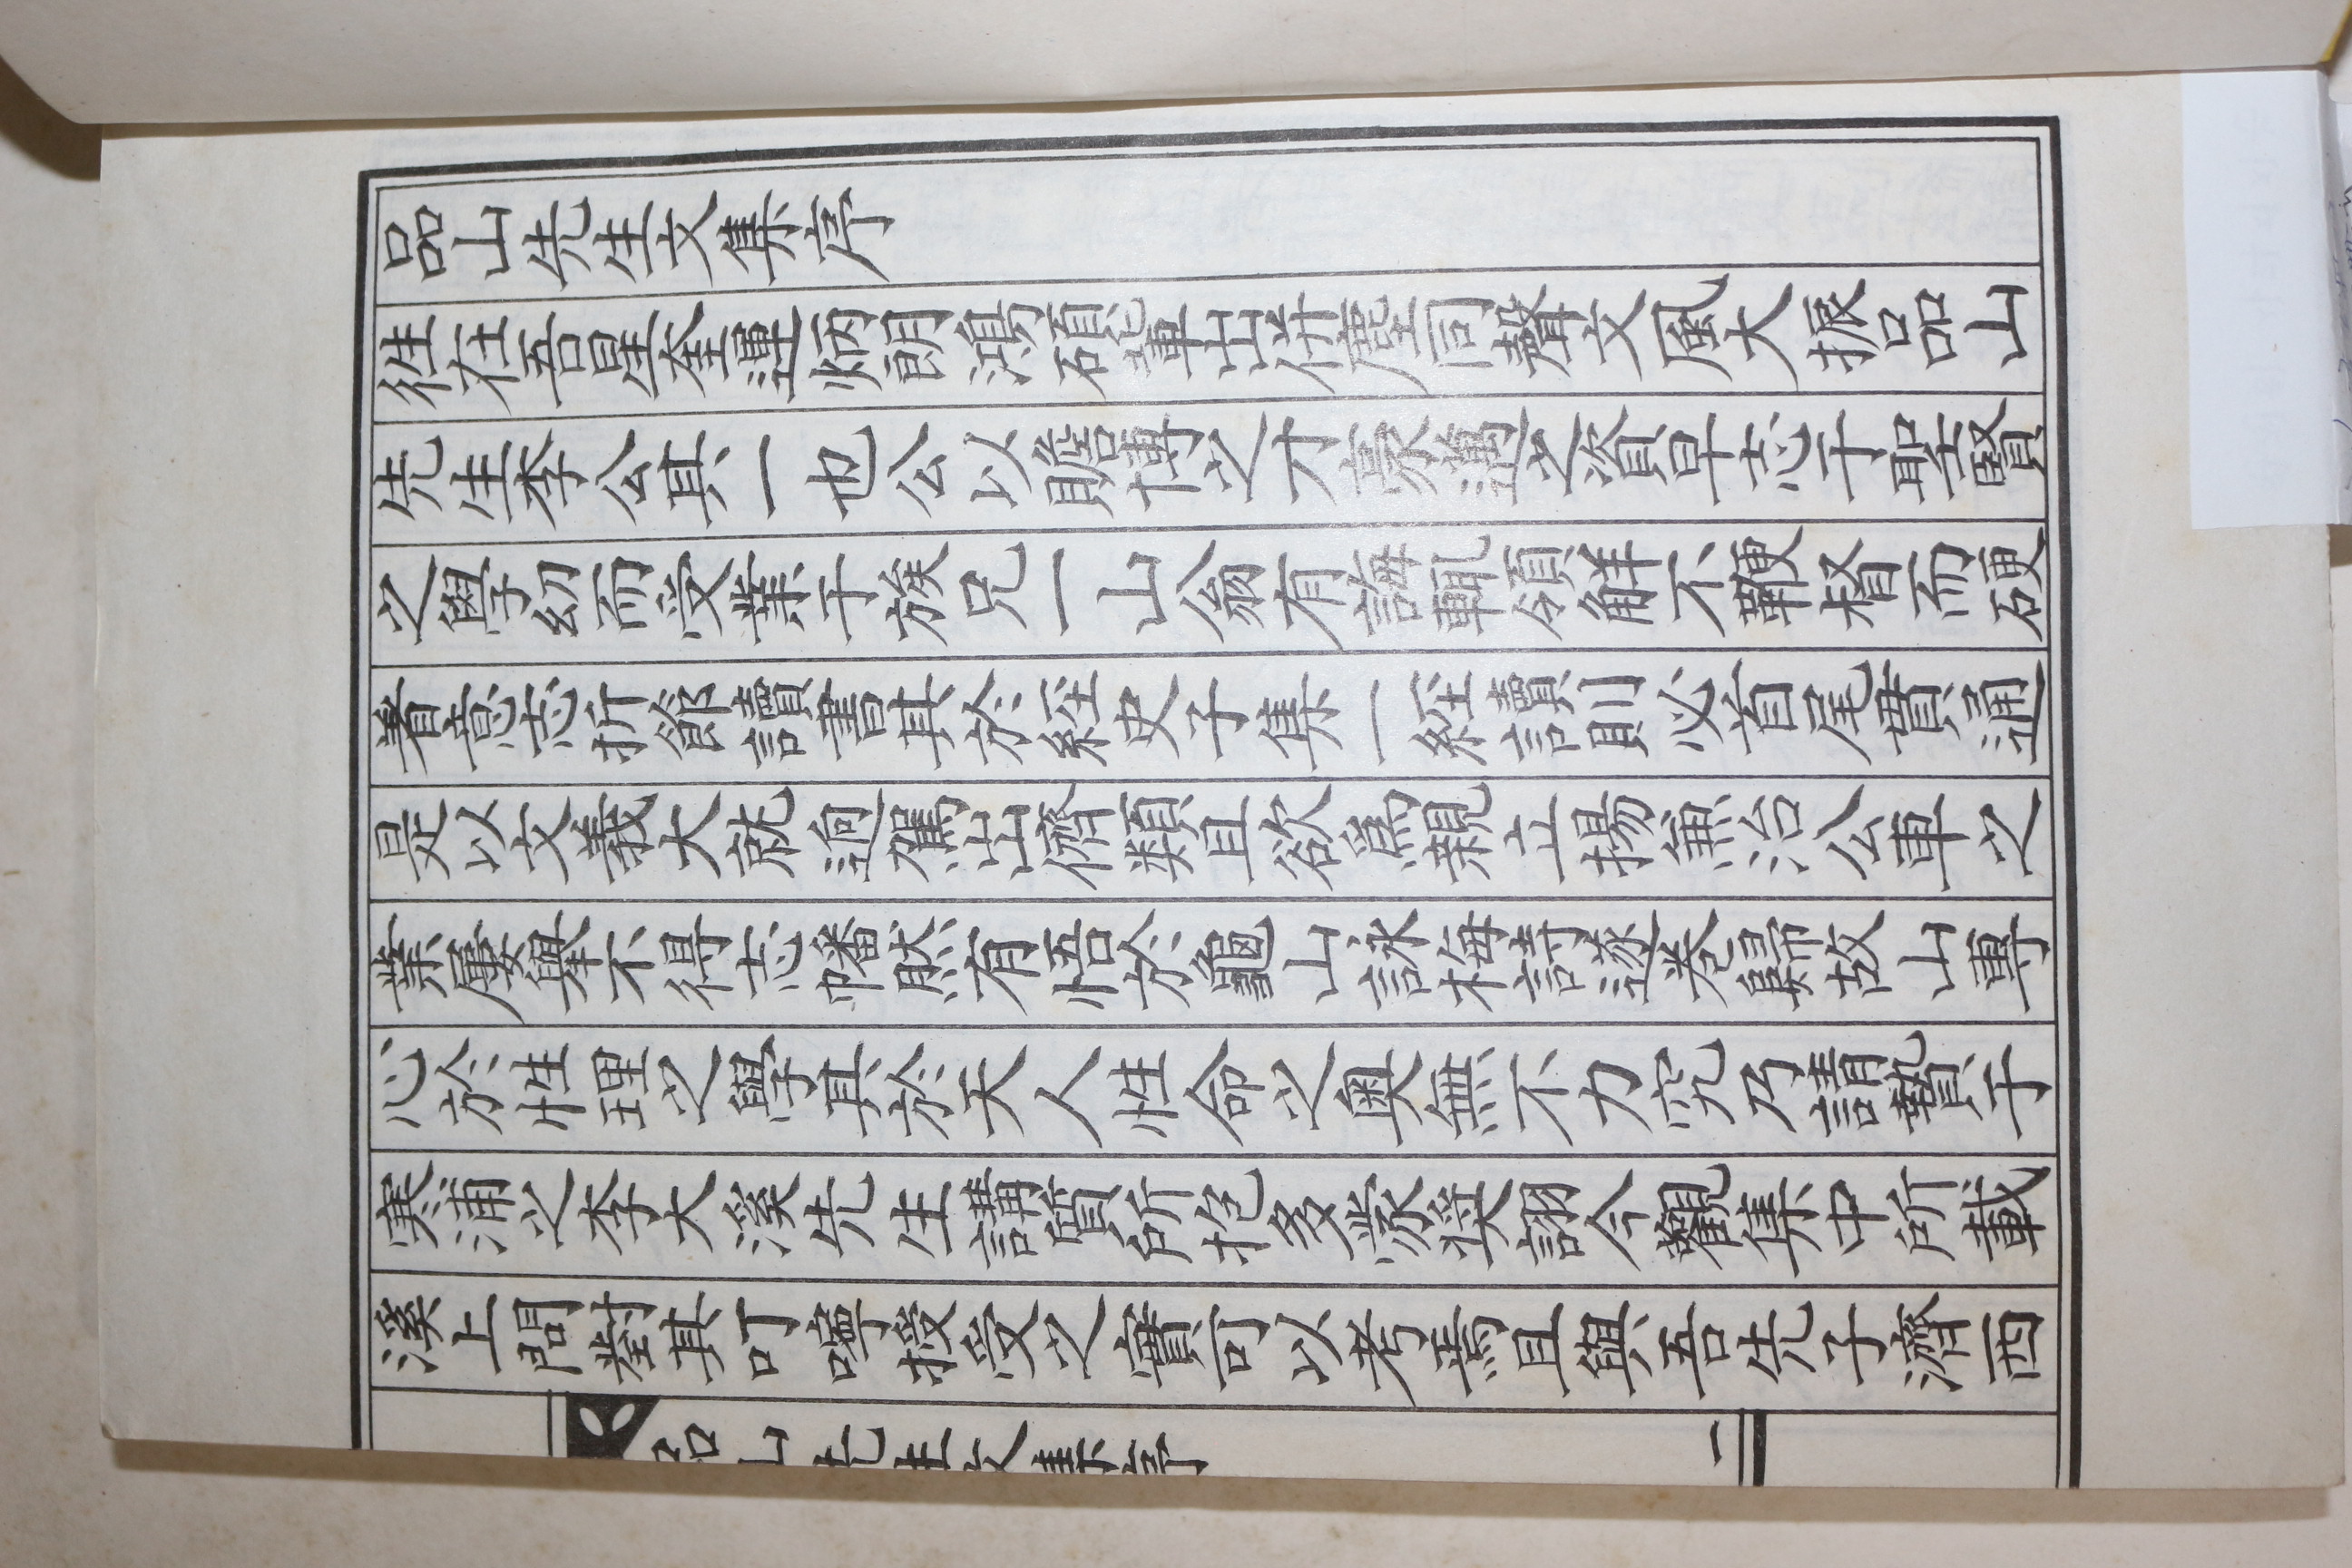 品山先生文集序
徃在吾星奎運炳朗鴻碩輩出併塵同聲文風大振品山
先生李公其一也公以贍博之才豪邁之資早志于聖賢
之學幼而受業于族兄一山翁有誨輒領觧不鞭督而硬
着意志折節讀書其於經史子集一經讀則必首尾貫通
是以文義大就逈駕出儕類且欲爲親立揚兼治公車之
業屢舉不得志幡然有悟於龜山詠梅詩遂卷歸故山專
心於性理之學其於天人性命之奧無不力究乃請贄于
寒浦之李大溪先生講質所抱多蒙奬詡今觀集中所載
溪上問對其叮嚀授受之實可以考焉且與吾先子濟西
品山先生文集序
二